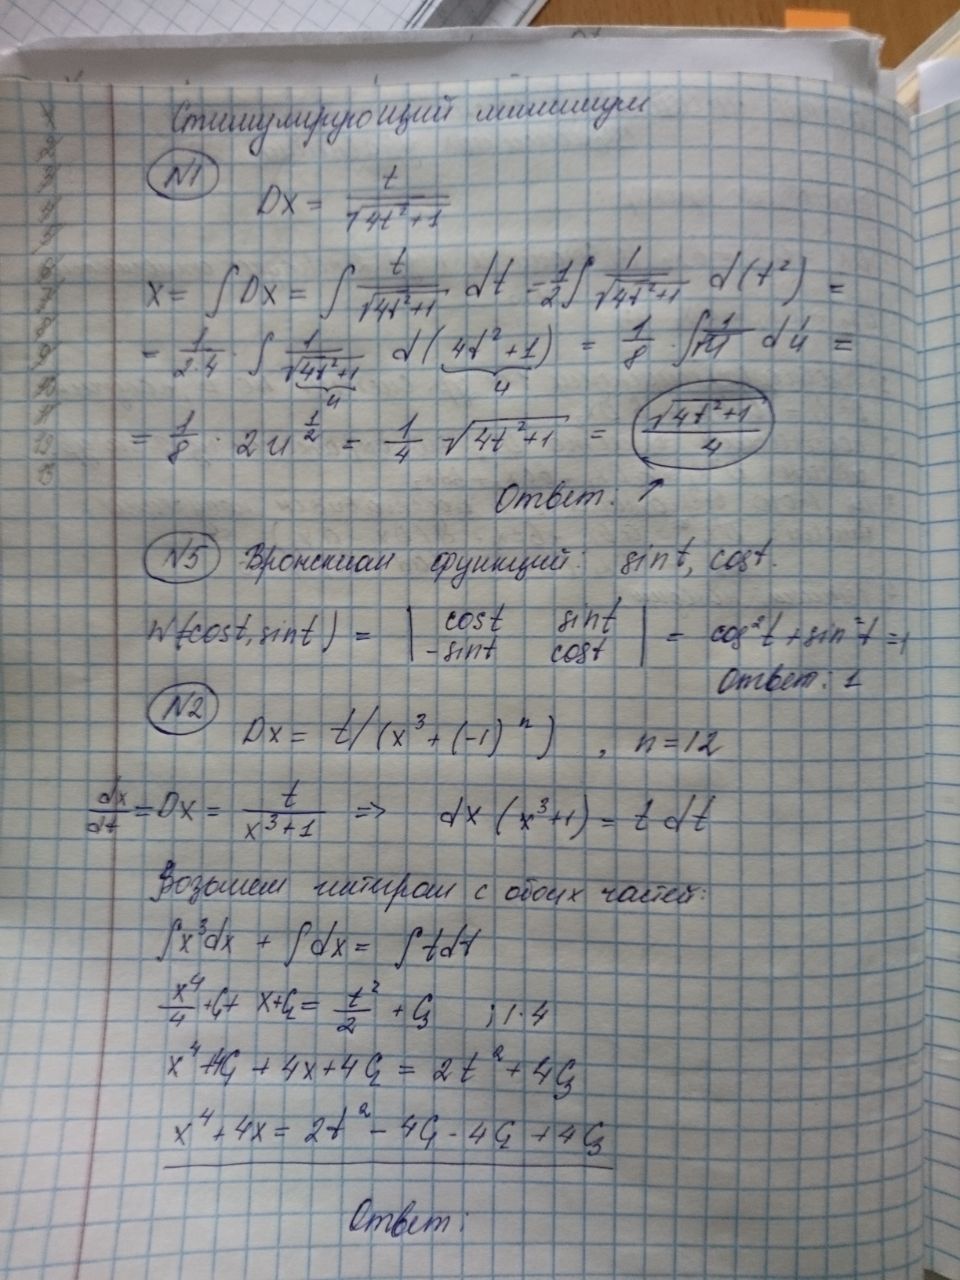 Стимулирующий минимум
N1
Dx = t/√(4t²+1)
x = ∫Dx = ∫ t/√(4t²+1) dt = 1/2 ∫ 1/√(4t²+1) d(t²) =
= 1/(2·4) · ∫ 1/√(4t²+1) d(4t²+1) = 1/8 · ∫ 1/√u du =
u u
= 1/8 · 2u^(1/2) = 1/4 √(4t²+1) = √(4t²+1)/4
Ответ: ↗
N5 Вронскиан функций: sint, cost.
W(cost, sint) = | cost sint
-sint cost | = cos²t + sin²t = 1
Ответ: 1
N2
Dx = t/(x³+(-1)ⁿ) , n=12
dx/dt = Dx = t/(x³+1) => dx(x³+1) = t dt
Возьмем интеграл с обоих частей:
∫x³dx + ∫dx = ∫tdt
x⁴/4 + C₁ + x + C₂ = t²/2 + C₃ ; | · 4
x⁴ + 4C₁ + 4x + 4C₂ = 2t² + 4C₃
x⁴ + 4x = 2t² - 4C₁ - 4C₂ + 4C₃
Ответ: